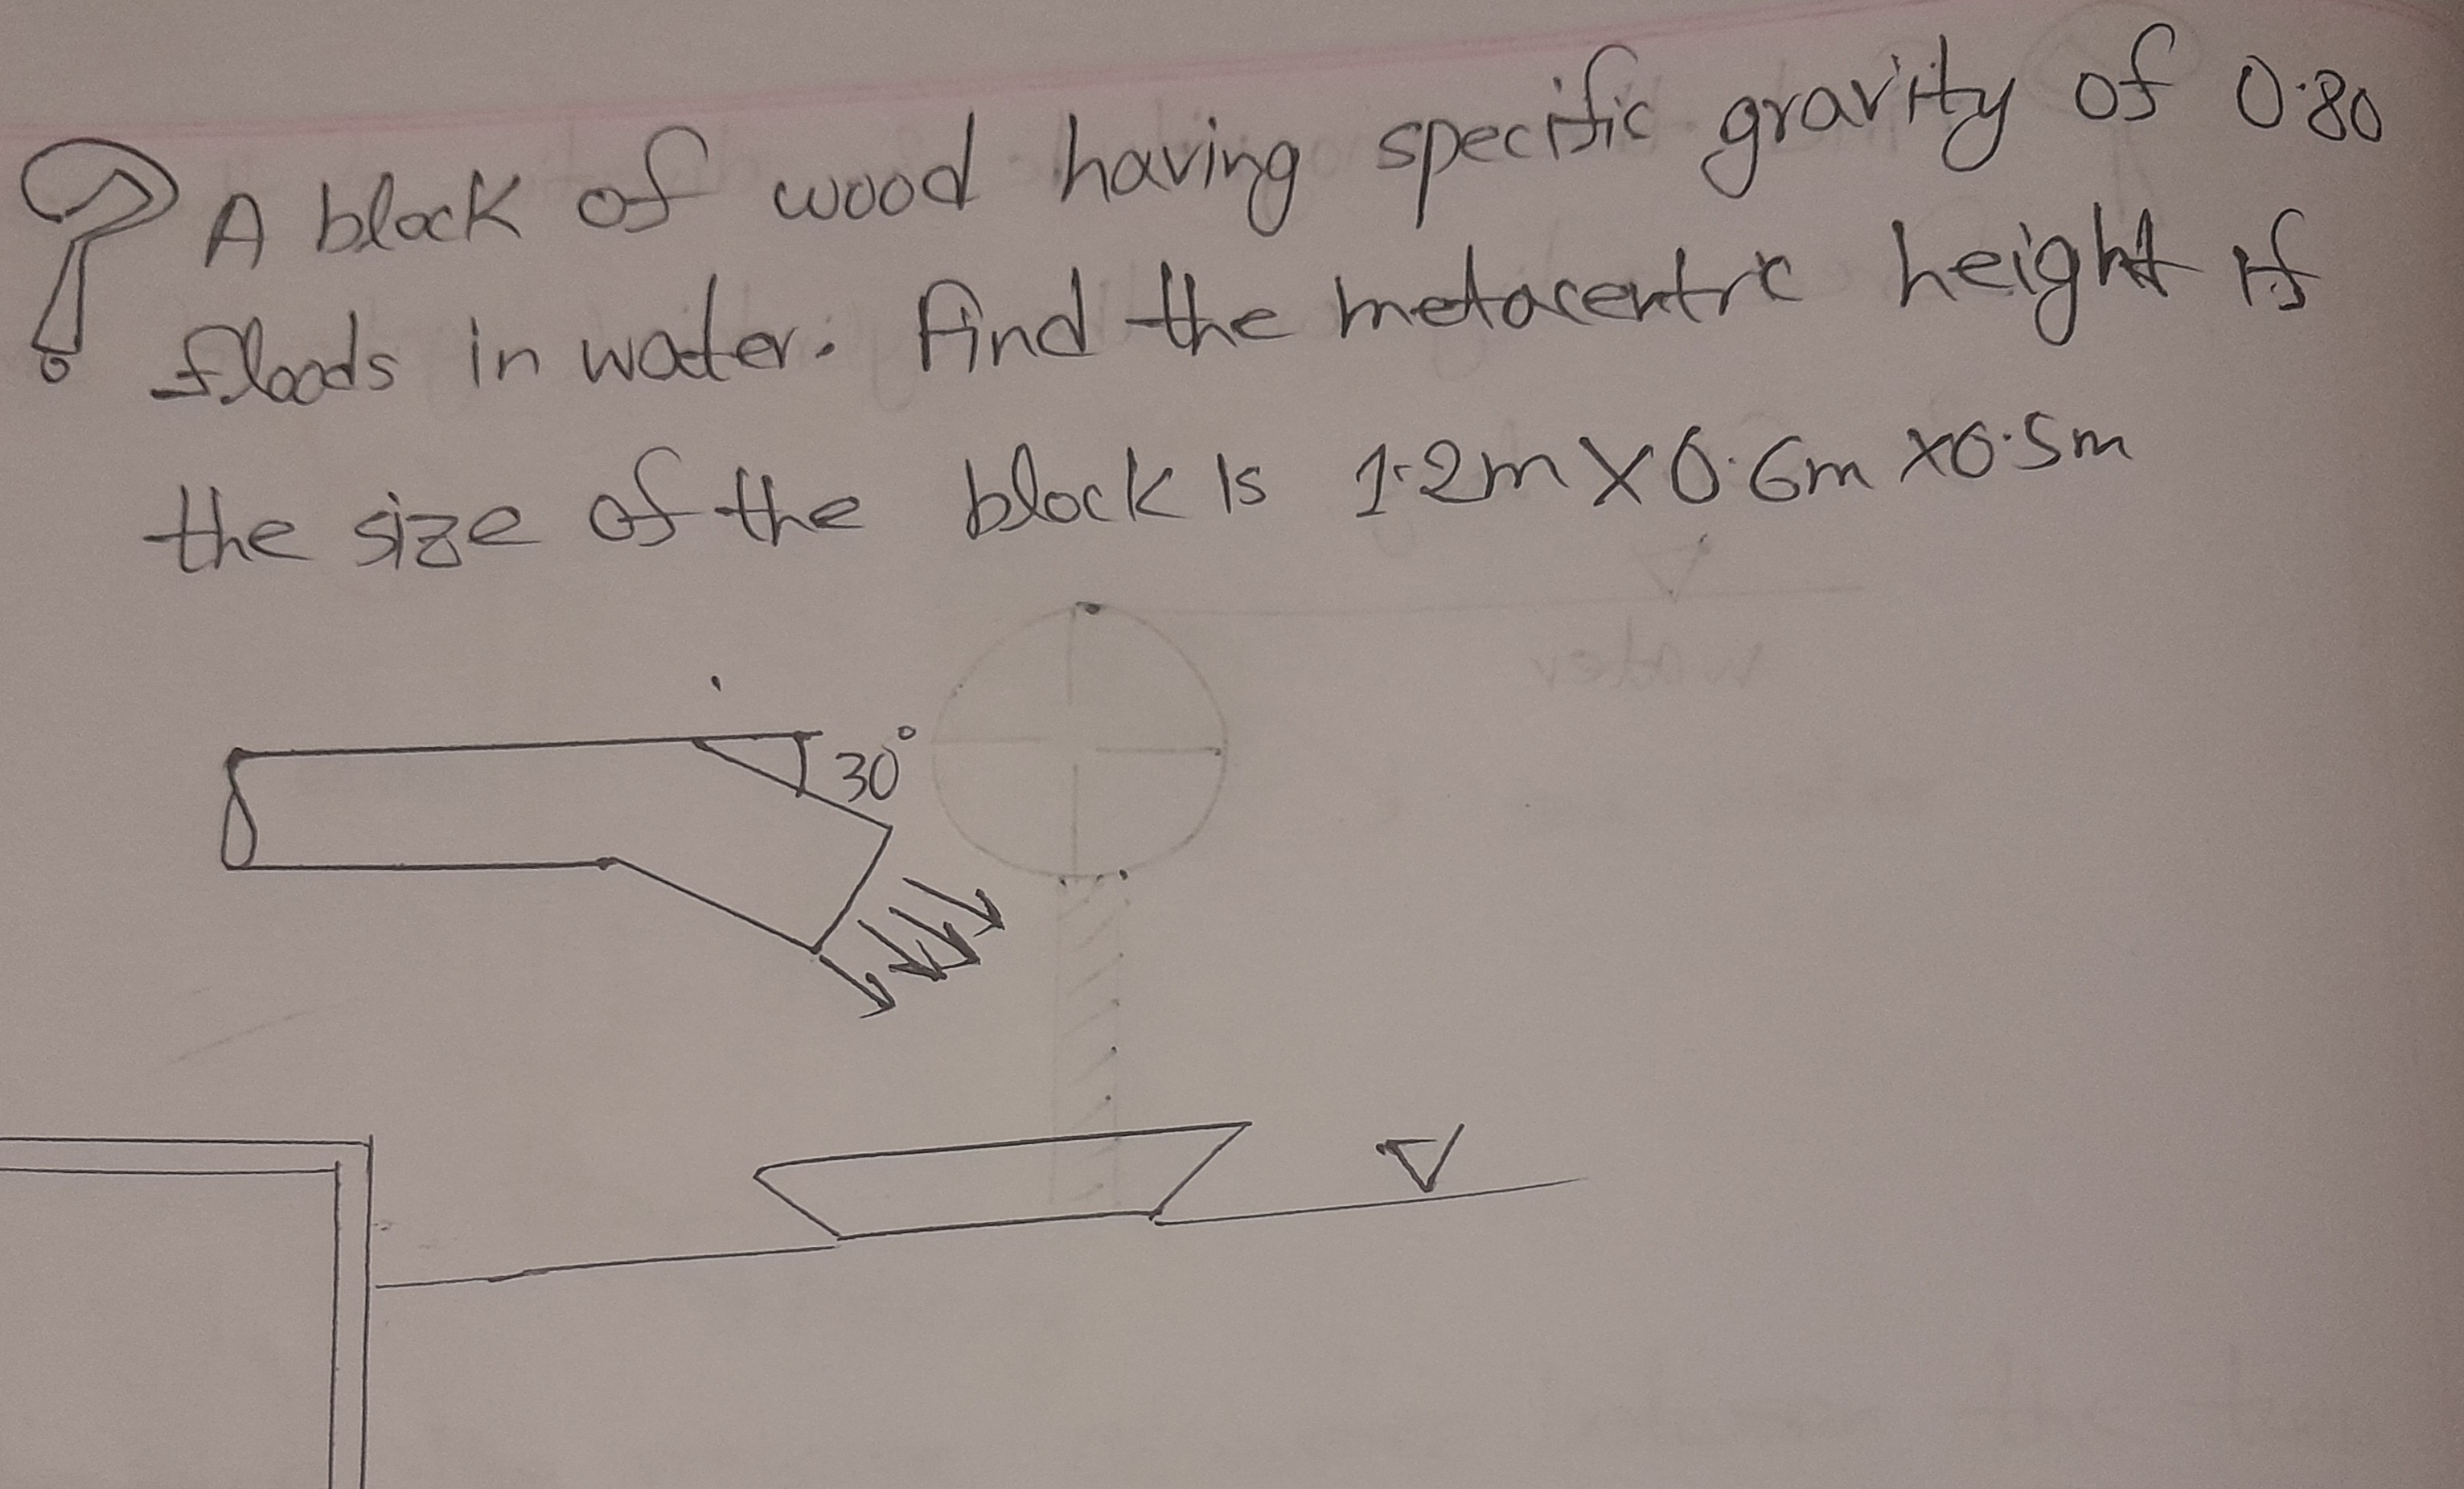 A block of wood having specific gravity of 0.80
floods in water. Find the metacentric height if
the size of the block is 1.2m X 0.6m X0.5m
water
30°